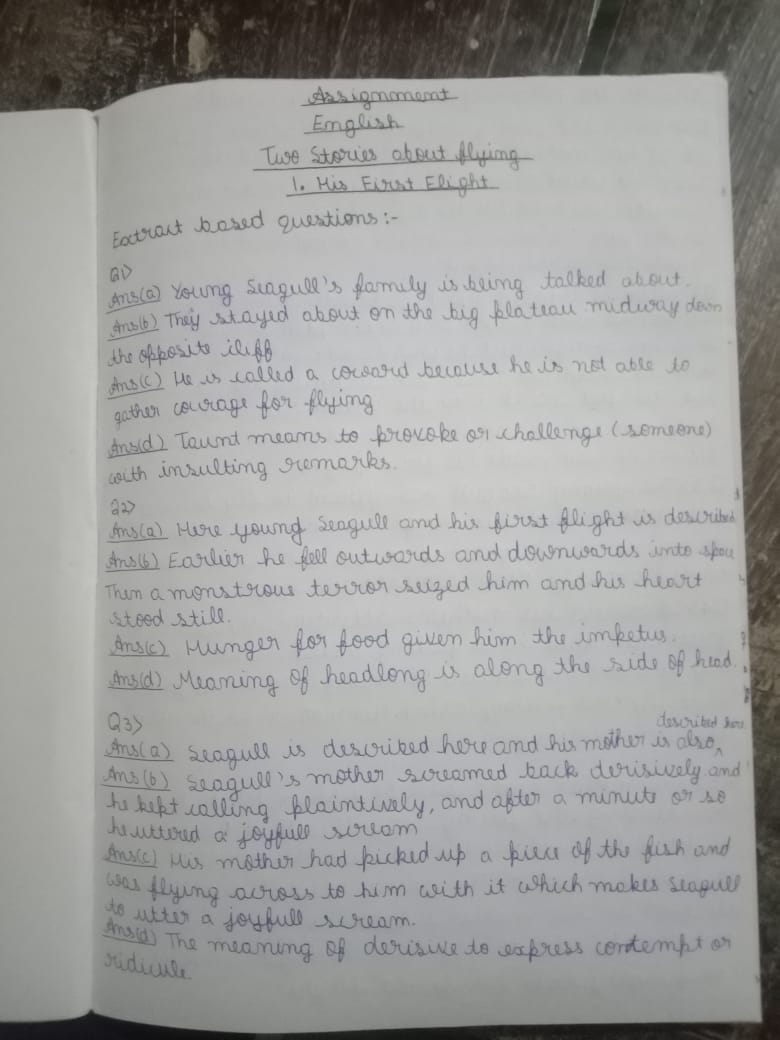 Assignment
English
Two Stories about flying
1. His First Flight
Extract based questions:-
Q1>
Ans(a) Young Seagull's family is being talked about.
Ans(b) They stayed about on the big plateau midway down
the opposite cliff
Ans(c) He is called a coward because he is not able to
gather courage for flying
Ans(d) Taunt means to provoke or challenge (someone)
with insulting remarks.
Q2>
Ans(a) Here young Seagull and his first flight is described
Ans(b) Earlier he fell outwards and downwards into space
Then a monstrous terror seized him and his heart
stood still.
Ans(c) Hunger for food given him the impetus.
Ans(d) Meaning of headlong is along the side of head.
Q3>
described here
Ans(a) Seagull is described here and his mother is also^
Ans(b) Seagull's mother screamed back derisively and
he kept calling plaintively, and after a minute or so
he uttered a joyfull scream
Ans(c) His mother had picked up a piece of the fish and
was flying across to him with it which makes Seagull
to utter a joyfull scream.
Ans(d) The meaning of derisive to express contempt or
ridicule.